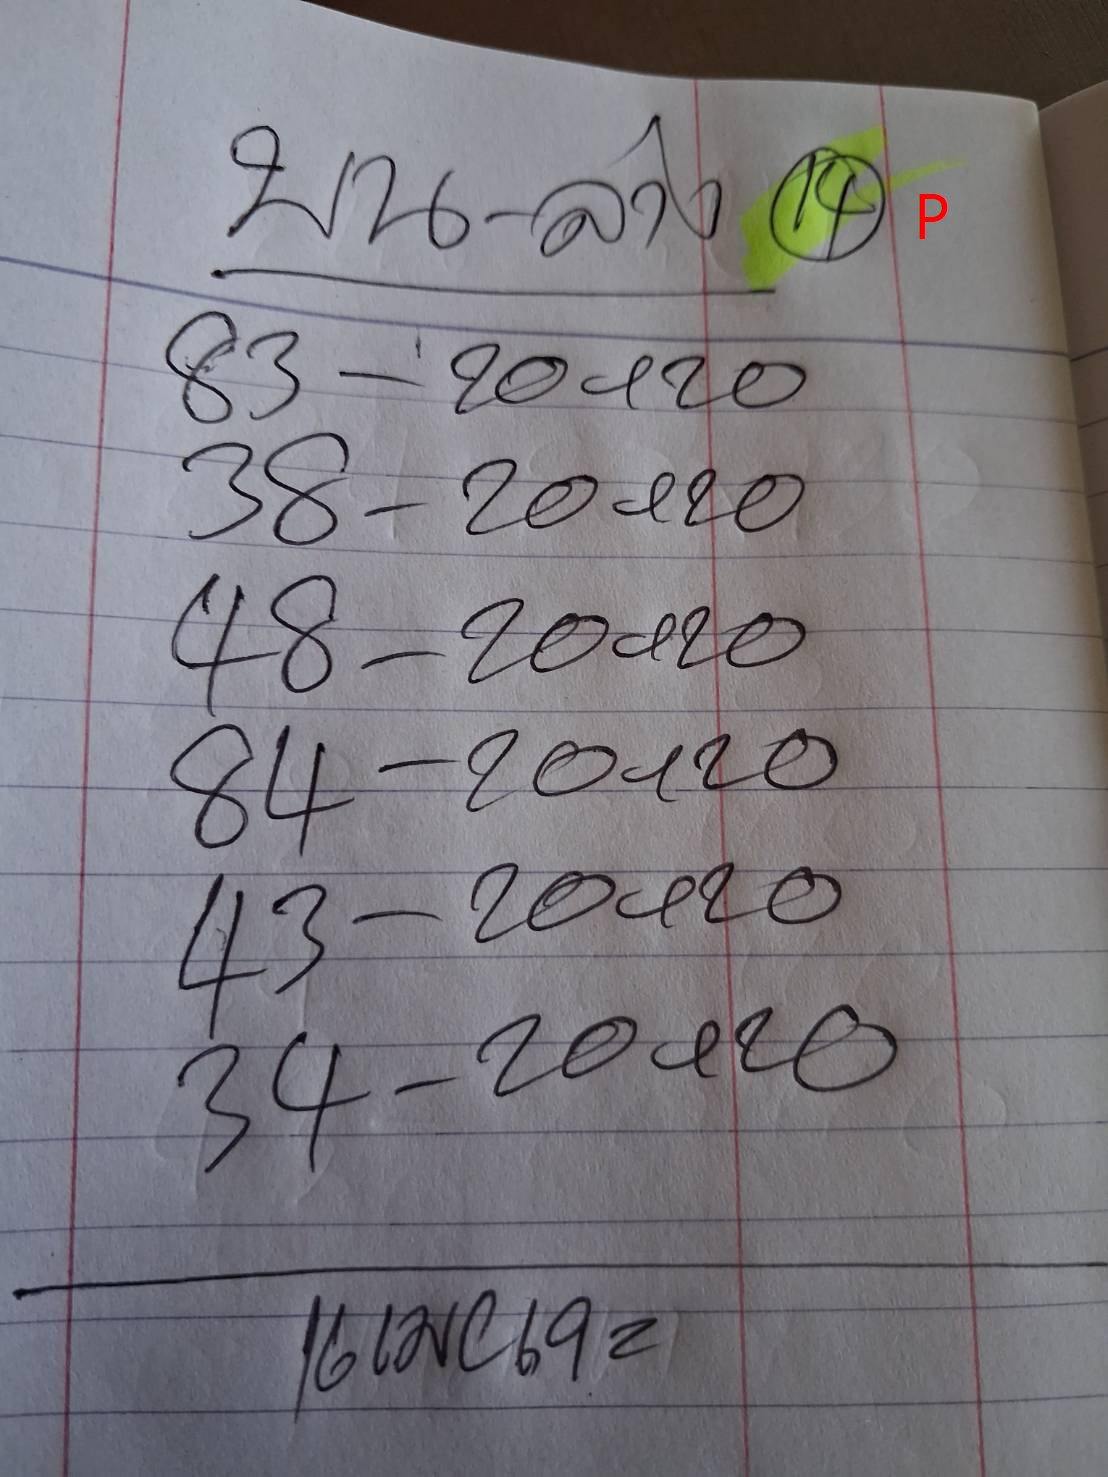 บน-ล่าง 14 P
83 - 20×20
38 - 20×20
48 - 20×20
84 - 20×20
43 - 20×20
34 - 20×20
16 เมษ 69 =